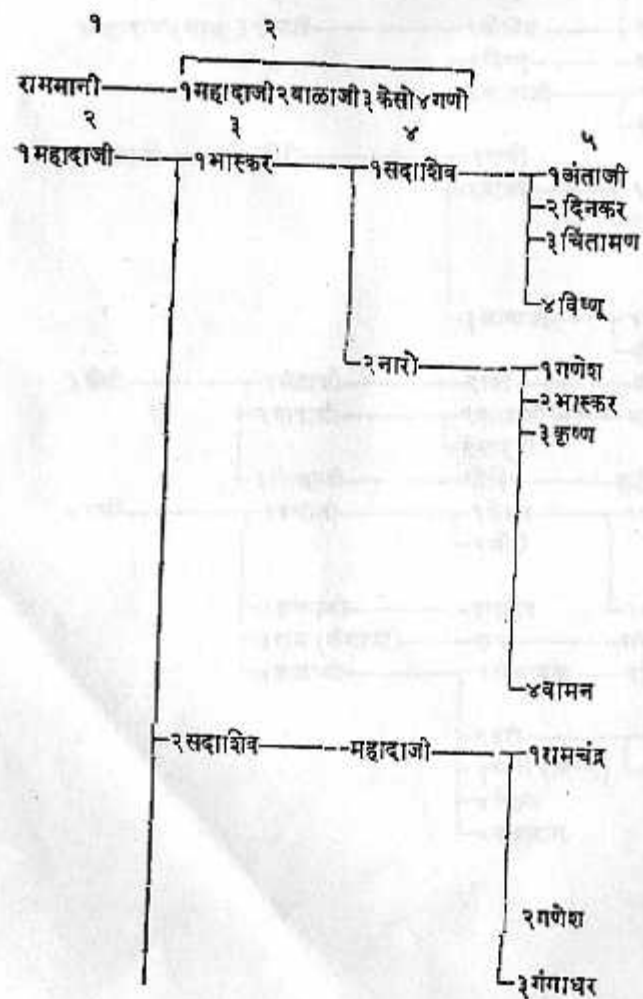 १ २
राममानी १महादाजी२बाळाजी३केसो४गणो
२ ३ ४ ५
१महादाजी १भास्कर १सदाशिव १अंताजी
२दिनकर
३चिंतामण
४विष्णू
२नारो १गणेश
२भास्कर
३कृष्ण
४वामन
२सदाशिव महादाजी १रामचंद्र
२गणेश
३गंगाधर